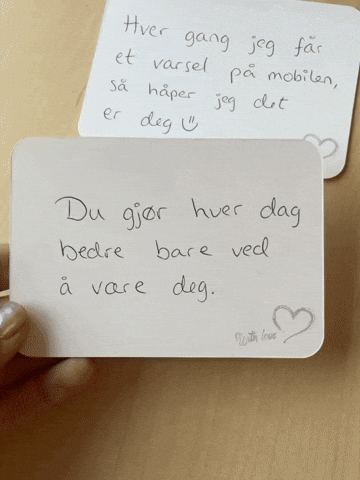 Hver gang jeg får
et varsel på mobilen,
så håper jeg det
er deg :)
Du gjør hver dag
bedre bare ved
å være deg.
With love